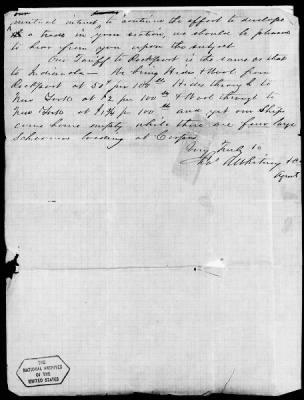 our
mutual interest, to continue the effort to develope
a trade in your section, we should be pleased
to hear from you upon the subject
Our Tariff to Rockport is the same as that
to Indianola — We bring Hides & Wool from
Rockport at 50¢ per 100 Hides through to
New York at $2 per 100 & Wool through to
New York at per 100 and yet our Ships
come home empty while there are four large
Schooners loading at Corpus
Very Truly
Whitney & Co
Agents
THE
NATIONAL ARCHIVES
OF THE
UNITED STATES